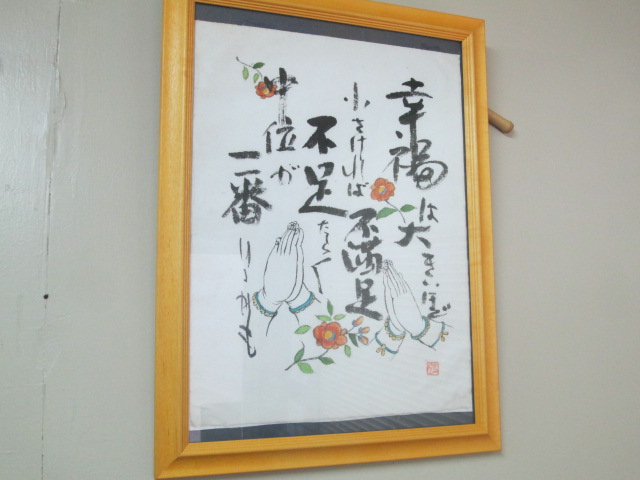 幸福は大きいほど
不満足
小さければ
不足たら〱
中位が
一番いいかも